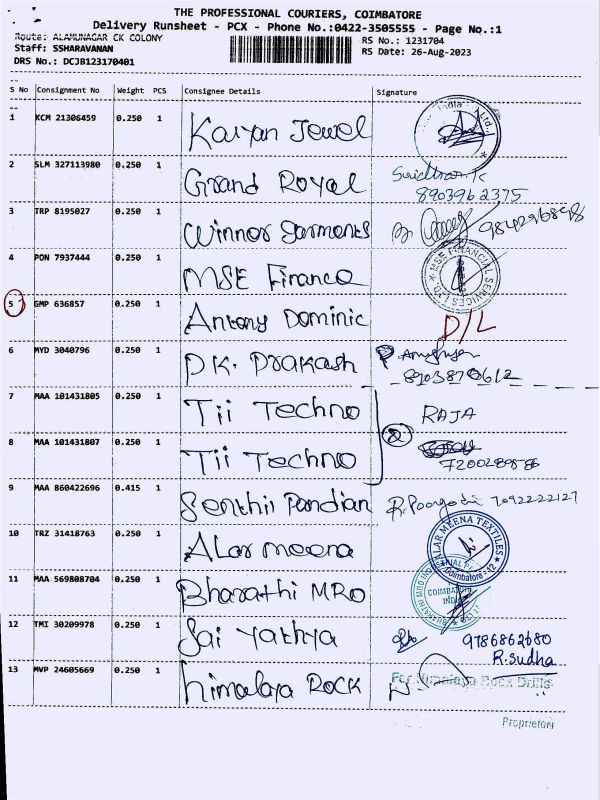 THE PROFESSIONAL COURIERS, COIMBATORE
Delivery Runsheet - PCX - Phone No.:0422-3505555 - Page No.:1
Route: ALAMUNAGAR CK COLONY
RS No.: 1231704
Staff: SSHARAVANAN
RS Date: 26-Aug-2023
DRS No.: DCJB123170401
S No Consignment No Weight PCS Consignee Details Signature
1 KCM 21306459 0.250 1 Kalyan Jewel
2 SLM 327113980 0.250 1 Grand Royal
8903962375
3 TRP 8195027 0.250 1 Winner Garments
4 PON 7937444 0.250 1 MSE Finance MSE FINANCIAL SERVICES LTD
5 GMP 636857 0.250 1 Antony Dominic D/L
6 MYD 3040796 0.250 1 P.K. Prakash
7 MAA 101431805 0.250 1 Tii Techno RAJA
8 MAA 101431807 0.250 1 Tii Techno
2
9 MAA 860422696 0.415 1 Senthil Pandian 7092222127
10 TRZ 31418763 0.250 1 Alar meena ALAR MEENA TEXTILES Coimbatore - 12
11 MAA 569808704 0.250 1 Bharathi MRO COIMBATORE INDIA
12 TMI 30209978 0.250 1 Sai Yathya 9786862680
R.Sudha
13 MVP 24605669 0.250 1 himalaya ROCK For Himalaya Rock Drills
Proprietor